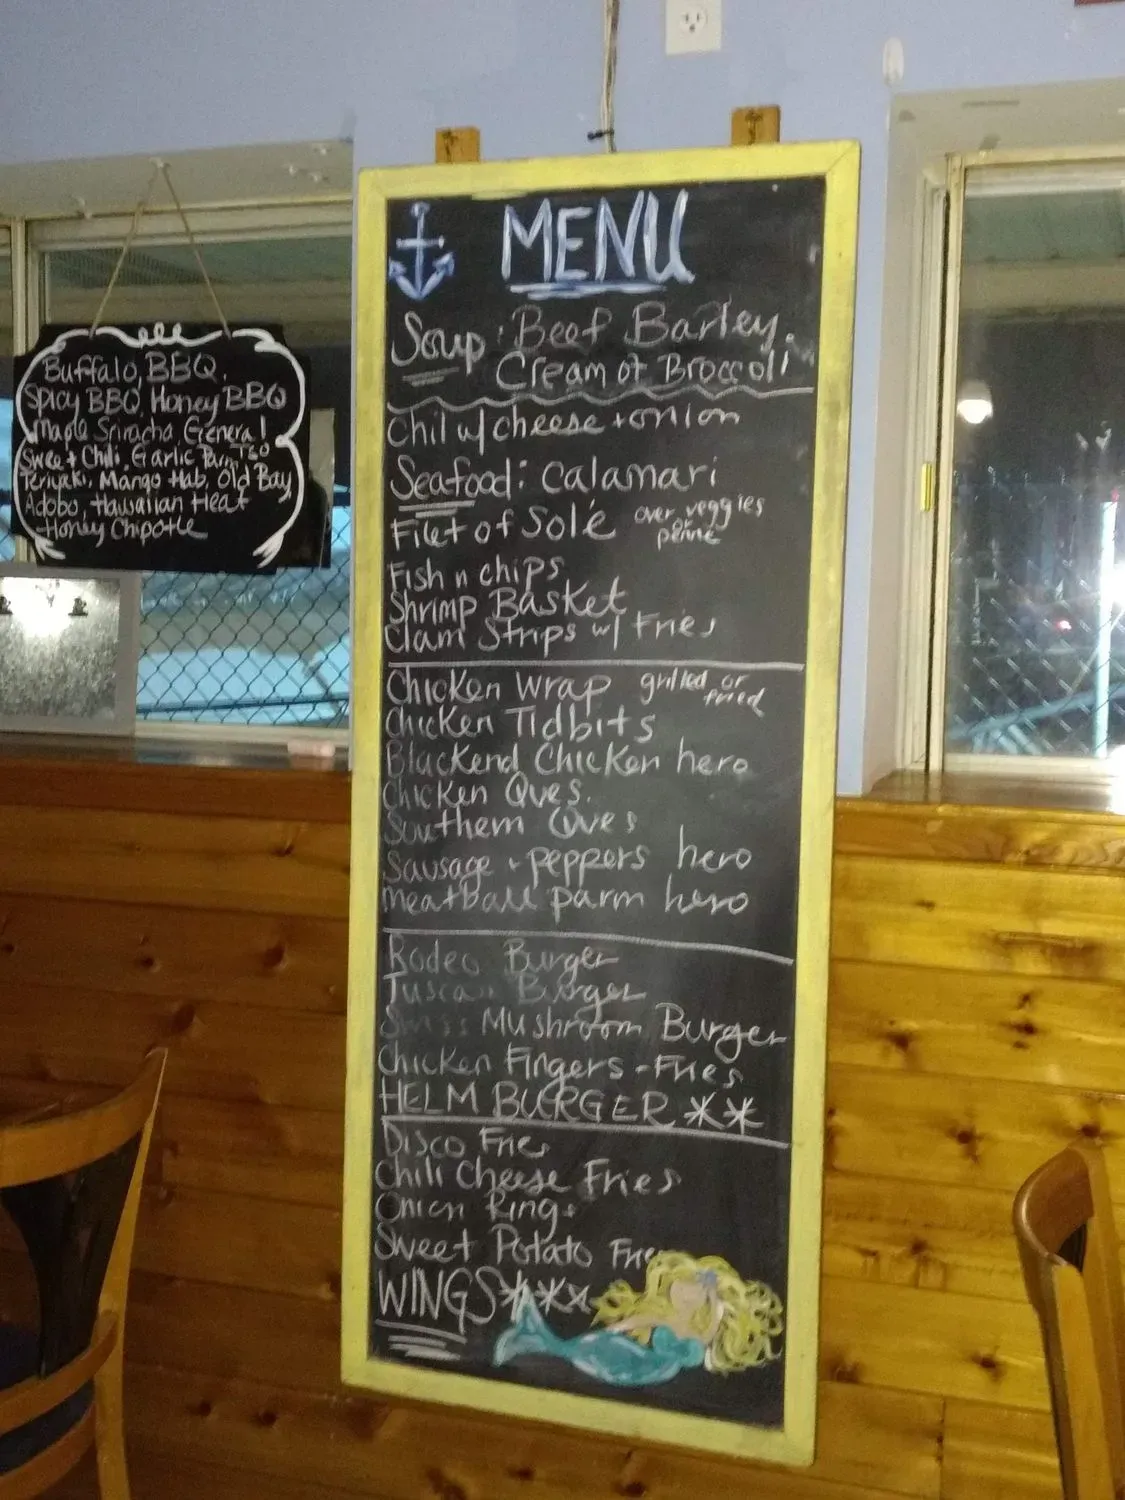 Buffalo, BBQ,
Spicy BBQ, Honey BBQ
Maple Sriracha, General
Tso
Sweet Chili, Garlic Parm,
Teriyaki, Mango Hab, Old Bay,
Adobo, Hawaiian Heat
Honey Chipotle
MENU
Soup: Beef Barley,
Cream of Broccoli
Chil w/ cheese + onion
Seafood: Calamari
Filet of Sole over veggies
or
penne
Fish n chips
Shrimp Basket
Clam Strips w/ Fries
Chicken Wrap grilled or
fried
Chicken Tidbits
Blackend Chicken hero
Chicken Ques.
Southern Ques
Sausage + peppers hero
meatball parm hero
Rodeo Burger
Tuscan Burger
Swiss Mushroom Burger
Chicken Fingers - Fries
HELM BURGER **
Disco Fries
Chili Cheese Fries
Onion Rings
Sweet Potato Fries
WINGS***